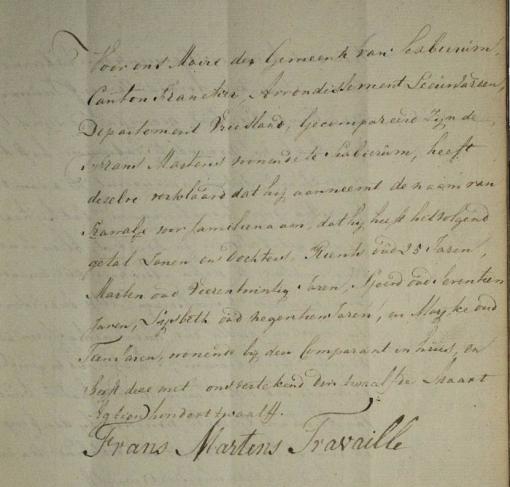 Voor ons Maire der Gemeente van Sexbierum,
Canton Franeker, Arrondissement Leeuwarden,
Departement Vriesland, Gecompareerd Zijnde
Frans Martens wonende te Sexbierum, heeft
deselve verklaard dat hij aanneemt de naam van
voor familienaam, dat hij heeft het volgend
getal Zonen en dochters, Rients oud 25 Jaren,
Marten oud Vierentwintig Jaren, Sjoerd oud Seventien
Jaren, Lijsbeth oud negentien Jaren, en Maijke oud
Tien Jaren, wonende bij den Comparant in huis, en
heeft deze met ons vertekend den twaalfde Maart
Agtien hondert twaalf.
Frans Martens Travaille